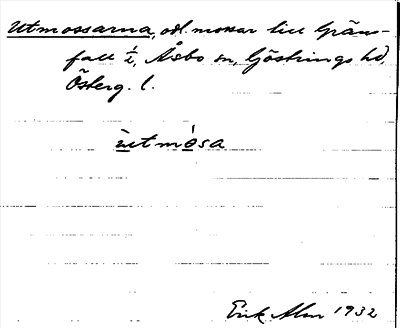 Utmossarna, odl. mossar till Gräns-
fall i, Åsbo sn, Göstrings hd,
Österg. l.
ùtmósa
Erik Alm 1932